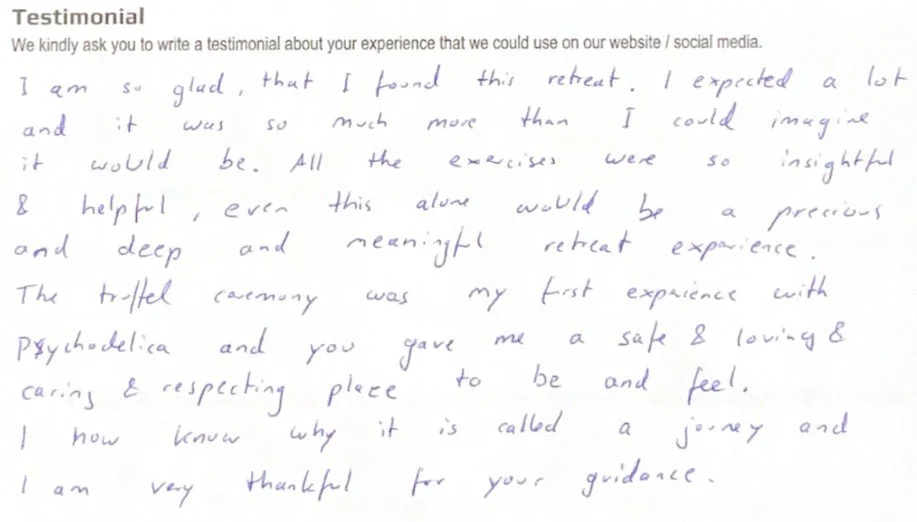 Testimonial
We kindly ask you to write a testimonial about your experience that we could use on our website / social media.
I am so glad, that I found this retreat. I expected a lot
and it was so much more than I could imagine
it would be. All the exercises were so insightful
& helpful, even this alone would be a precious
and deep and meaningful retreat experience.
The truffel ceremony was my first experience with
Psychodelica and you gave me a safe & loving &
caring & respecting place to be and feel.
I now know why it is called a journey and
I am very thankful for your guidance.